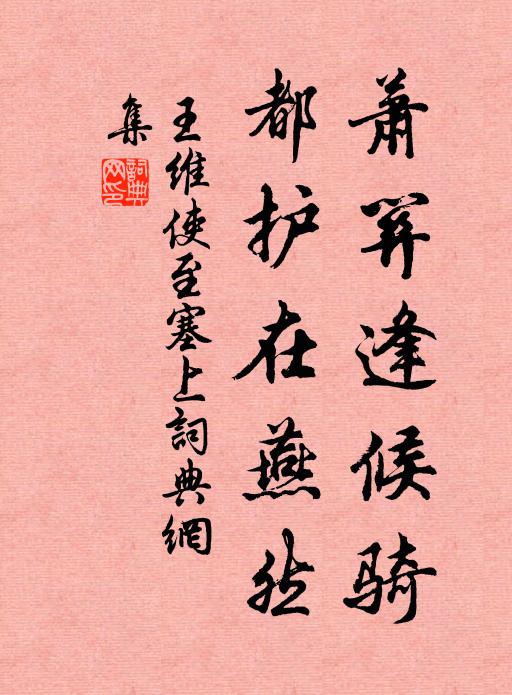 萧关逢候骑
都护在燕然
王维使至塞上詞典網
集
詞典网印